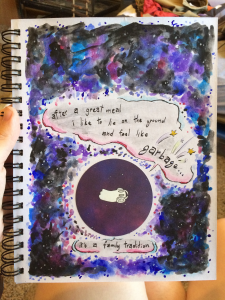 after a great meal
I like to lie on the ground
and feel like
garbage...
it's a family tradition